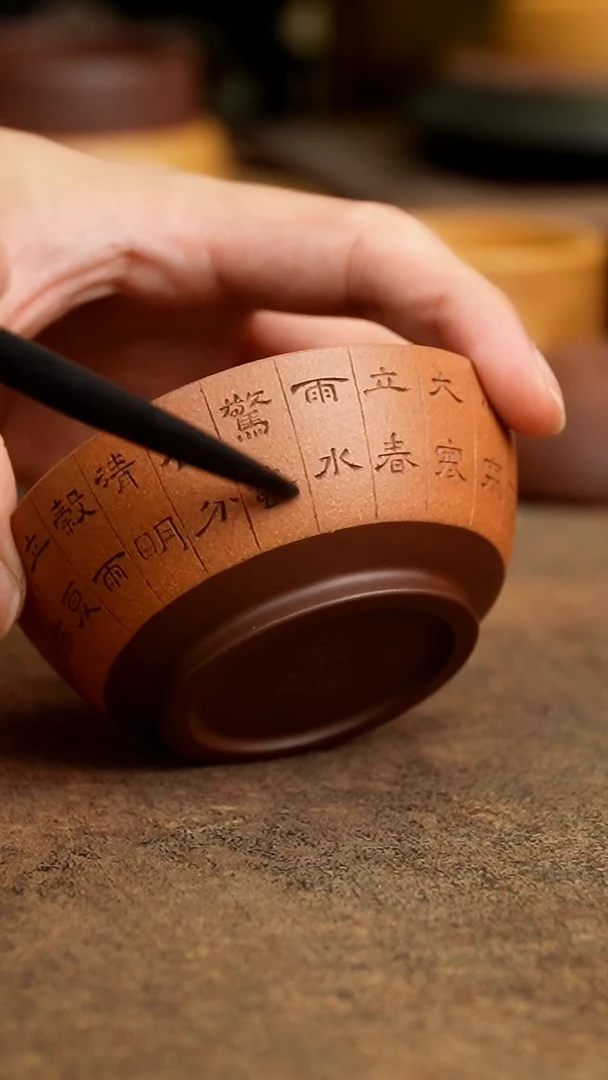 大寒
立春
雨水
驚
分
清明
穀雨
立夏